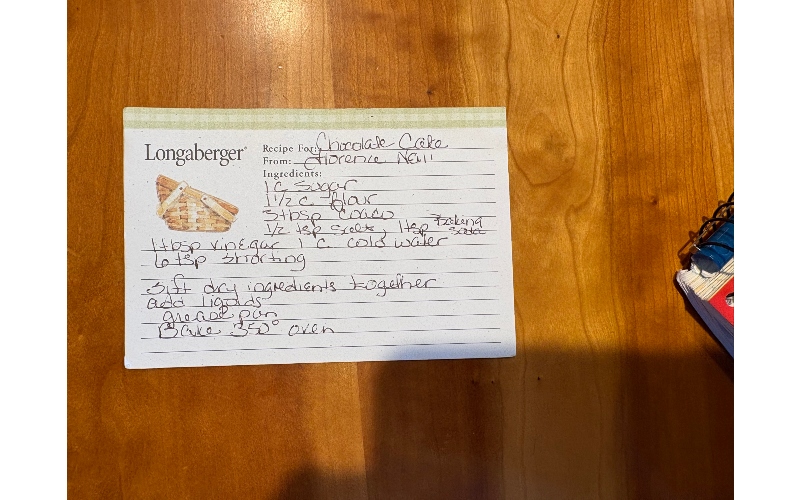 Longaberger®
Recipe For: Chocolate Cake
From: Florence Neill
Ingredients:
1 c Sugar
1 1/2 c flour
3 tbsp Coaco
1/2 tsp Salt, 1tsp Baking Soda
1 tbsp vinegar 1 c. cold water
6 tsp Shorting
Sift dry ingredients together
add liqids
grease pan
Bake 350° oven